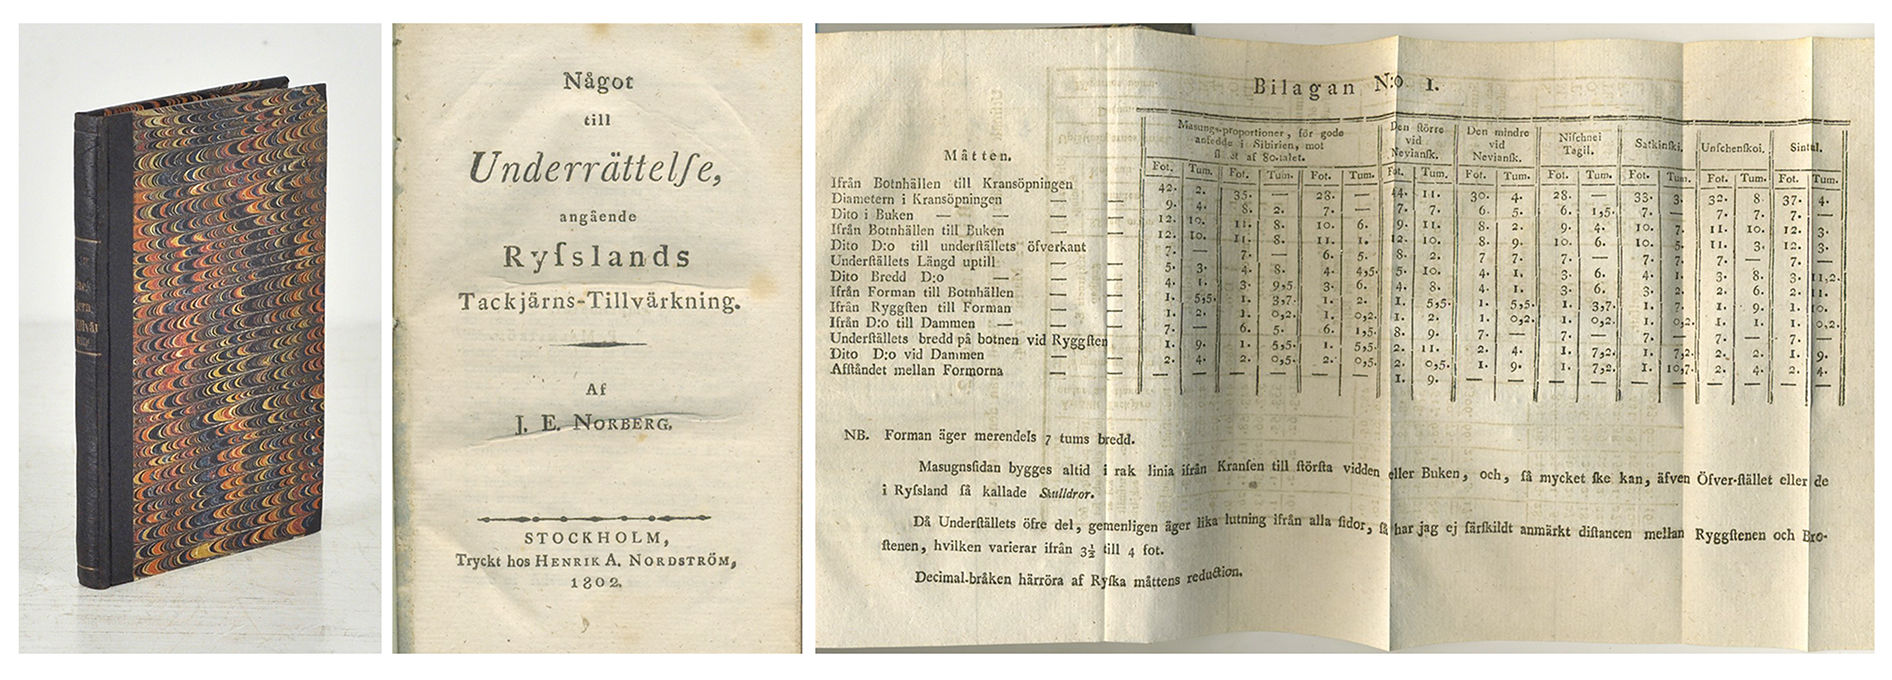 Något
till
Underrättelſe,
angående
Ryſslands
Tackjärns-Tillvärkning.
Af
J. E. NORBERG.
STOCKHOLM,
Tryckt hos HENRIK A. NORDSTRÖM,
1802.
Bilagan N:o 1.
Måtten.
Masungs-proportioner, för gode
anſedde i Sibirien, mot
ſlutet af 80-talet.
Den ſtörre
vid
Nevianſk.
Den mindre
vid
Nevianſk.
Niſchnei
Tagil.
Satkinſkoi.
Unſchenſkoi.
Sintul.
Fot. Tum. Fot. Tum. Fot. Tum. Fot. Tum. Fot. Tum. Fot. Tum. Fot. Tum. Fot. Tum. Fot. Tum.
Ifrån Botnhällen till Kransöpningen 42. 2. 35. — 28. — 44. 11. 30. 4. 28. — 33. 3. 32. 8. 37. 4.
Diametern i Kransöpningen — — 9. 4. 8. 2. 7. — 7. 7. 6. 5. 6. 1,5. 7. — 7. 7. 7. —
Dito i Buken — — — — 12. 10. 11. 8. 10. 6. 9. 11. 8. 2. 9. 4. 10. 7. 11. 10. 12. 3.
Ifrån Botnhällen till Buken — — 12. 10. 11. 8. 11. 1. 12. 10. 8. 9. 10. 6. 10. 5. 11. 3. 12. 3.
Dito D:o till underſtällets öfverkant 7. — 7. — 6. 5. 8. 2. 7. 7. 7. — 7. — 7. — 7. —
Underſtällets Längd uptill — — 5. 3. 4. 8. 4. 4,5. 5. 10. 4. 1. 3. 6. 4. 1. 3. 8. 3. 11,2.
Dito Bredd D:o — — — 4. 1. 3. 9,5 3. 6. 4. 8. 4. 1. 3. 6. 3. 2. 2. 6. 2. 11.
Ifrån Forman till Botnhällen — — 1. 5,5. 1. 3,7. 1. 2. 1. 5,5. 1. 5,5. 1. 3,7. 1. 7. 1. 9. 1. 10.
Ifrån Ryggſten till Forman — — 1. 2. 1. 0,2. 1. 0,2. 1. 2. 1. 0,2. 1. 0,2. 1. 0,2. 1. 1. 1. 0,2.
Ifrån D:o till Dammen — — — 7. — 6. 5. 6. 1,5. 8. 9. 7. — 7. — 7. — 7. — 7. —
Underſtällets bredd på botnen vid Ryggſten 1. 9. 1. 5,5. 1. 5,5. 2. 11. 2. 4. 1. 7,2. 1. 7,2. 2. 2. 1. 9.
Dito D:o vid Dammen — — 2. 4. 2. 0,5. 2. 0,5. 2. 0,5. 1. 9. 1. 7,2. 1. 10,7. 2. 4. 2. 4.
Afſtåndet mellan Formorna — — — — — — — — 1. 9. — — — — — — — — — —
NB. Forman äger merendels 7 tums bredd.
Masugnſidan bygges altid i rak linia ifrån Kranſen till ſtörſta vidden eller Buken, och, ſå mycket ſke kan, äfven Öfver-ſtället eller de
i Ryſsland ſå kallade Skulldror.
Då Underſtällets öfre del, gemenligen äger lika lutning ifrån alla ſidor, ſå har jag ej ſärſkildt anmärkt diſtancen mellan Ryggſtenen och Bro-
ſtenen, hvilken varierar ifrån 3½ till 4 fot.
Decimal-bråken härröra af Ryſka måttens reduction.